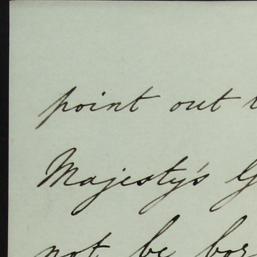 point out
Majesty's
not be